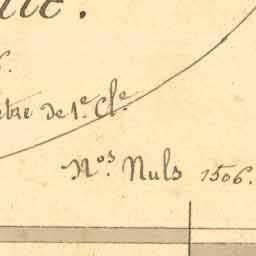 ètre de 1.e Cl.e
N.os Nuls 1506.